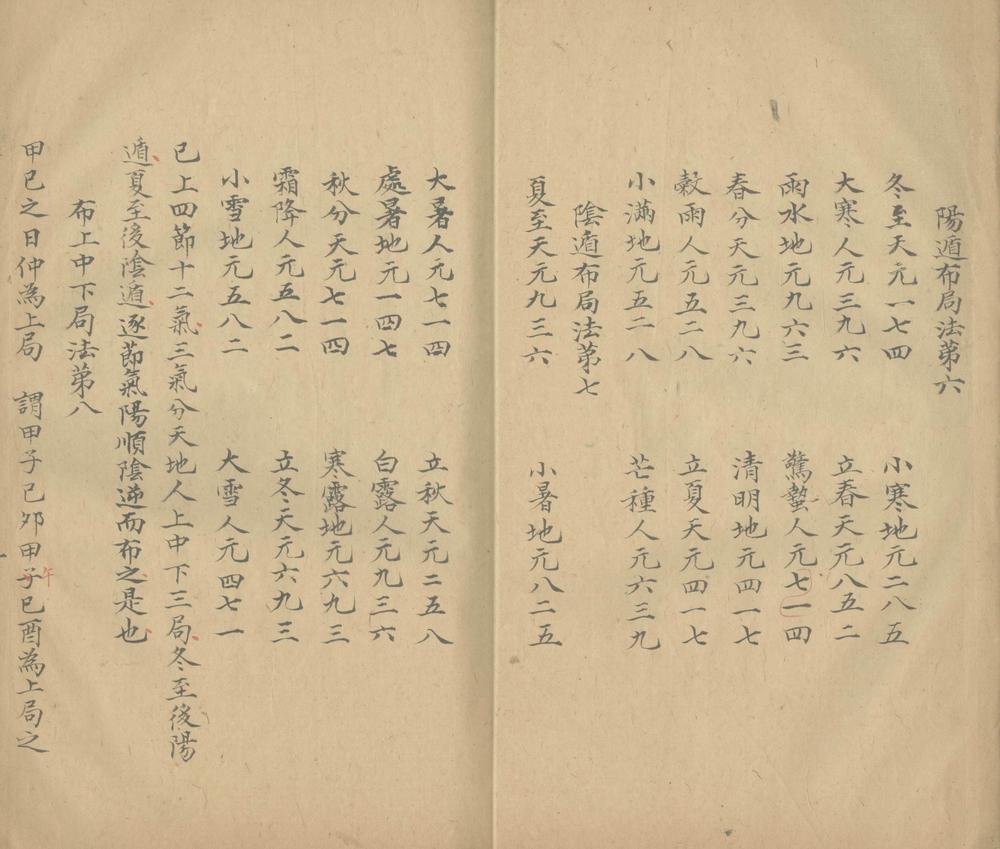 陽遁布局法第六
冬至天元一七四　小寒地元二八五
大寒人元三九六　立春天元八五二
雨水地元九六三　驚蟄人元七一四
春分天元三九六　清明地元四一七
穀雨人元五二八　立夏天元四一七
小滿地元五二八　芒種人元六三九
陰遁布局法第七
夏至天元九三六　小暑地元八二五
大暑人元七一四　立秋天元二五八
處暑地元一四七　白露人元九三六
秋分天元七一四　寒露地元六九三
霜降人元五八二　立冬天元六九三
小雪地元五八二　大雪人元四七一
已上四節十二氣三氣分天地人上中下三局冬至後陽
遁夏至後陰遁逐節氣陽順陰逆而布之是也
布上中下局法第八
甲已之日仲為上局　謂甲子己夘甲子已酉為上局之
午